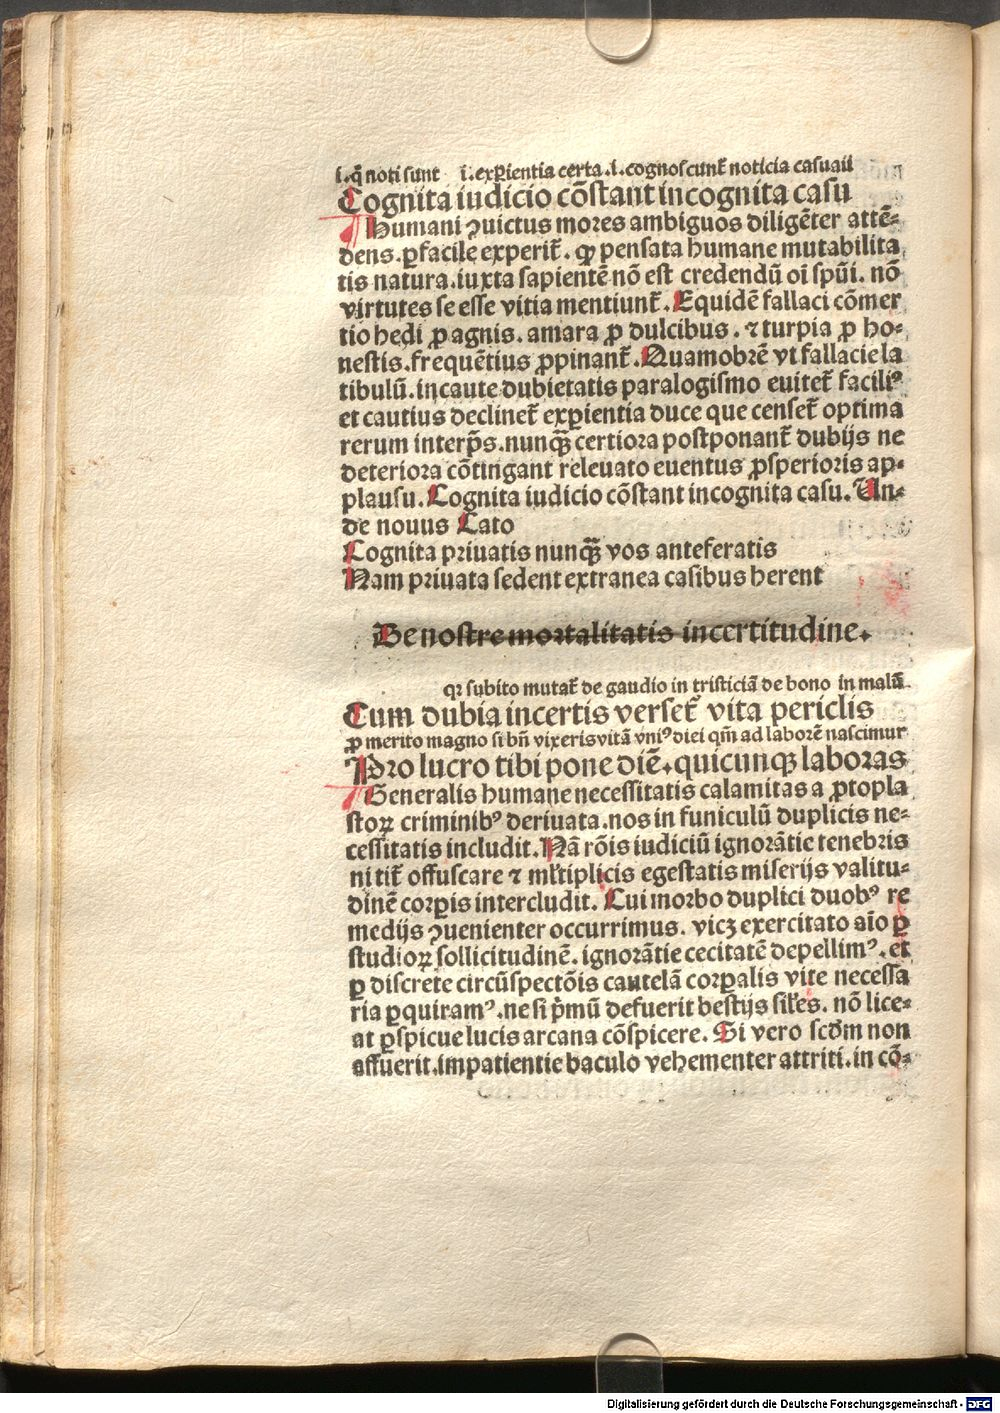 i. q̄ noti sunt i. exꝑientia certa .i. cognoscunt᷑ noticia casuali
Cognita iudicio cōstant incognita casu
Humani ꝯuictus mores ambiguos diligēter attē-
dens . ꝑfacile experit᷑ . ꝙ pensata humane mutabilita
tis natura . iuxta sapientē nō est credendū oī spūi . nō
virtutes se esse vitia mentiunt᷑ . Equidē fallaci cōmer
tio hedi ꝓ agnis . amara ꝓ dulcibus . ⁊ turpia ꝓ ho-
nestis . frequētius ꝓpinant᷑ . Quamobrē vt fallacie la
tibulū . incaute dubietatis paralogismo euitet᷑ faciliꝰ
et cautius declinet᷑ exꝑientia duce que censet᷑ optima
rerum interp̄s . nunqꝫ̄ certiora postponant᷑ dubijs ne
deteriora cōtingant releuato euentus ꝓsperioris ap-
plausu . Cognita iudicio cōstant incognita casu . Un-
de nouus Cato
Cognita priuatis nunqꝫ̄ vos anteferatis
Nam priuata sedent extranea casibus herent
De nostre mortalitatis incertitudine .
qꝛ subito mutat᷑ de gaudio in tristiciā de bono in malū
Cum dubia incertis verset᷑ vita periclis
ꝓ merito magno si bn̄ vixeris vitā vniꝰ diei qm̄ ad laborē nascimur
Pro lucro tibi pone diē . quicunqꝫ laboras
Generalis humane necessitatis calamitas a ꝓtopla
stoꝝ criminibꝰ deriuata . nos in funiculū duplicis ne-
cessitatis includit . Nā rōis iudiciū ignorātie tenebris
nitit᷑ offuscare ⁊ ml̄tiplicis egestatis miserijs valitu-
dinē corꝑis intercludit . Cui morbo duplici duobꝰ re
medijs ꝯuenienter occurrimus . vicꝫ exercitato aīo ꝑ
studioꝝ sollicitudinē . ignorātie cecitatē depellimꝰ . et
ꝑ discrete circūspectōis cautelā corꝑalis vite necessa
ria ꝑquiramꝰ . ne si p̄mū defuerit bestijs sil̄es . nō lice-
at ꝑspicue lucis arcana cōspicere . Si vero scd̄m non
affuerit . impatientie baculo vehementer attriti . in cō-
Digitalisierung gefördert durch die Deutsche Forschungsgemeinschaft - DFG